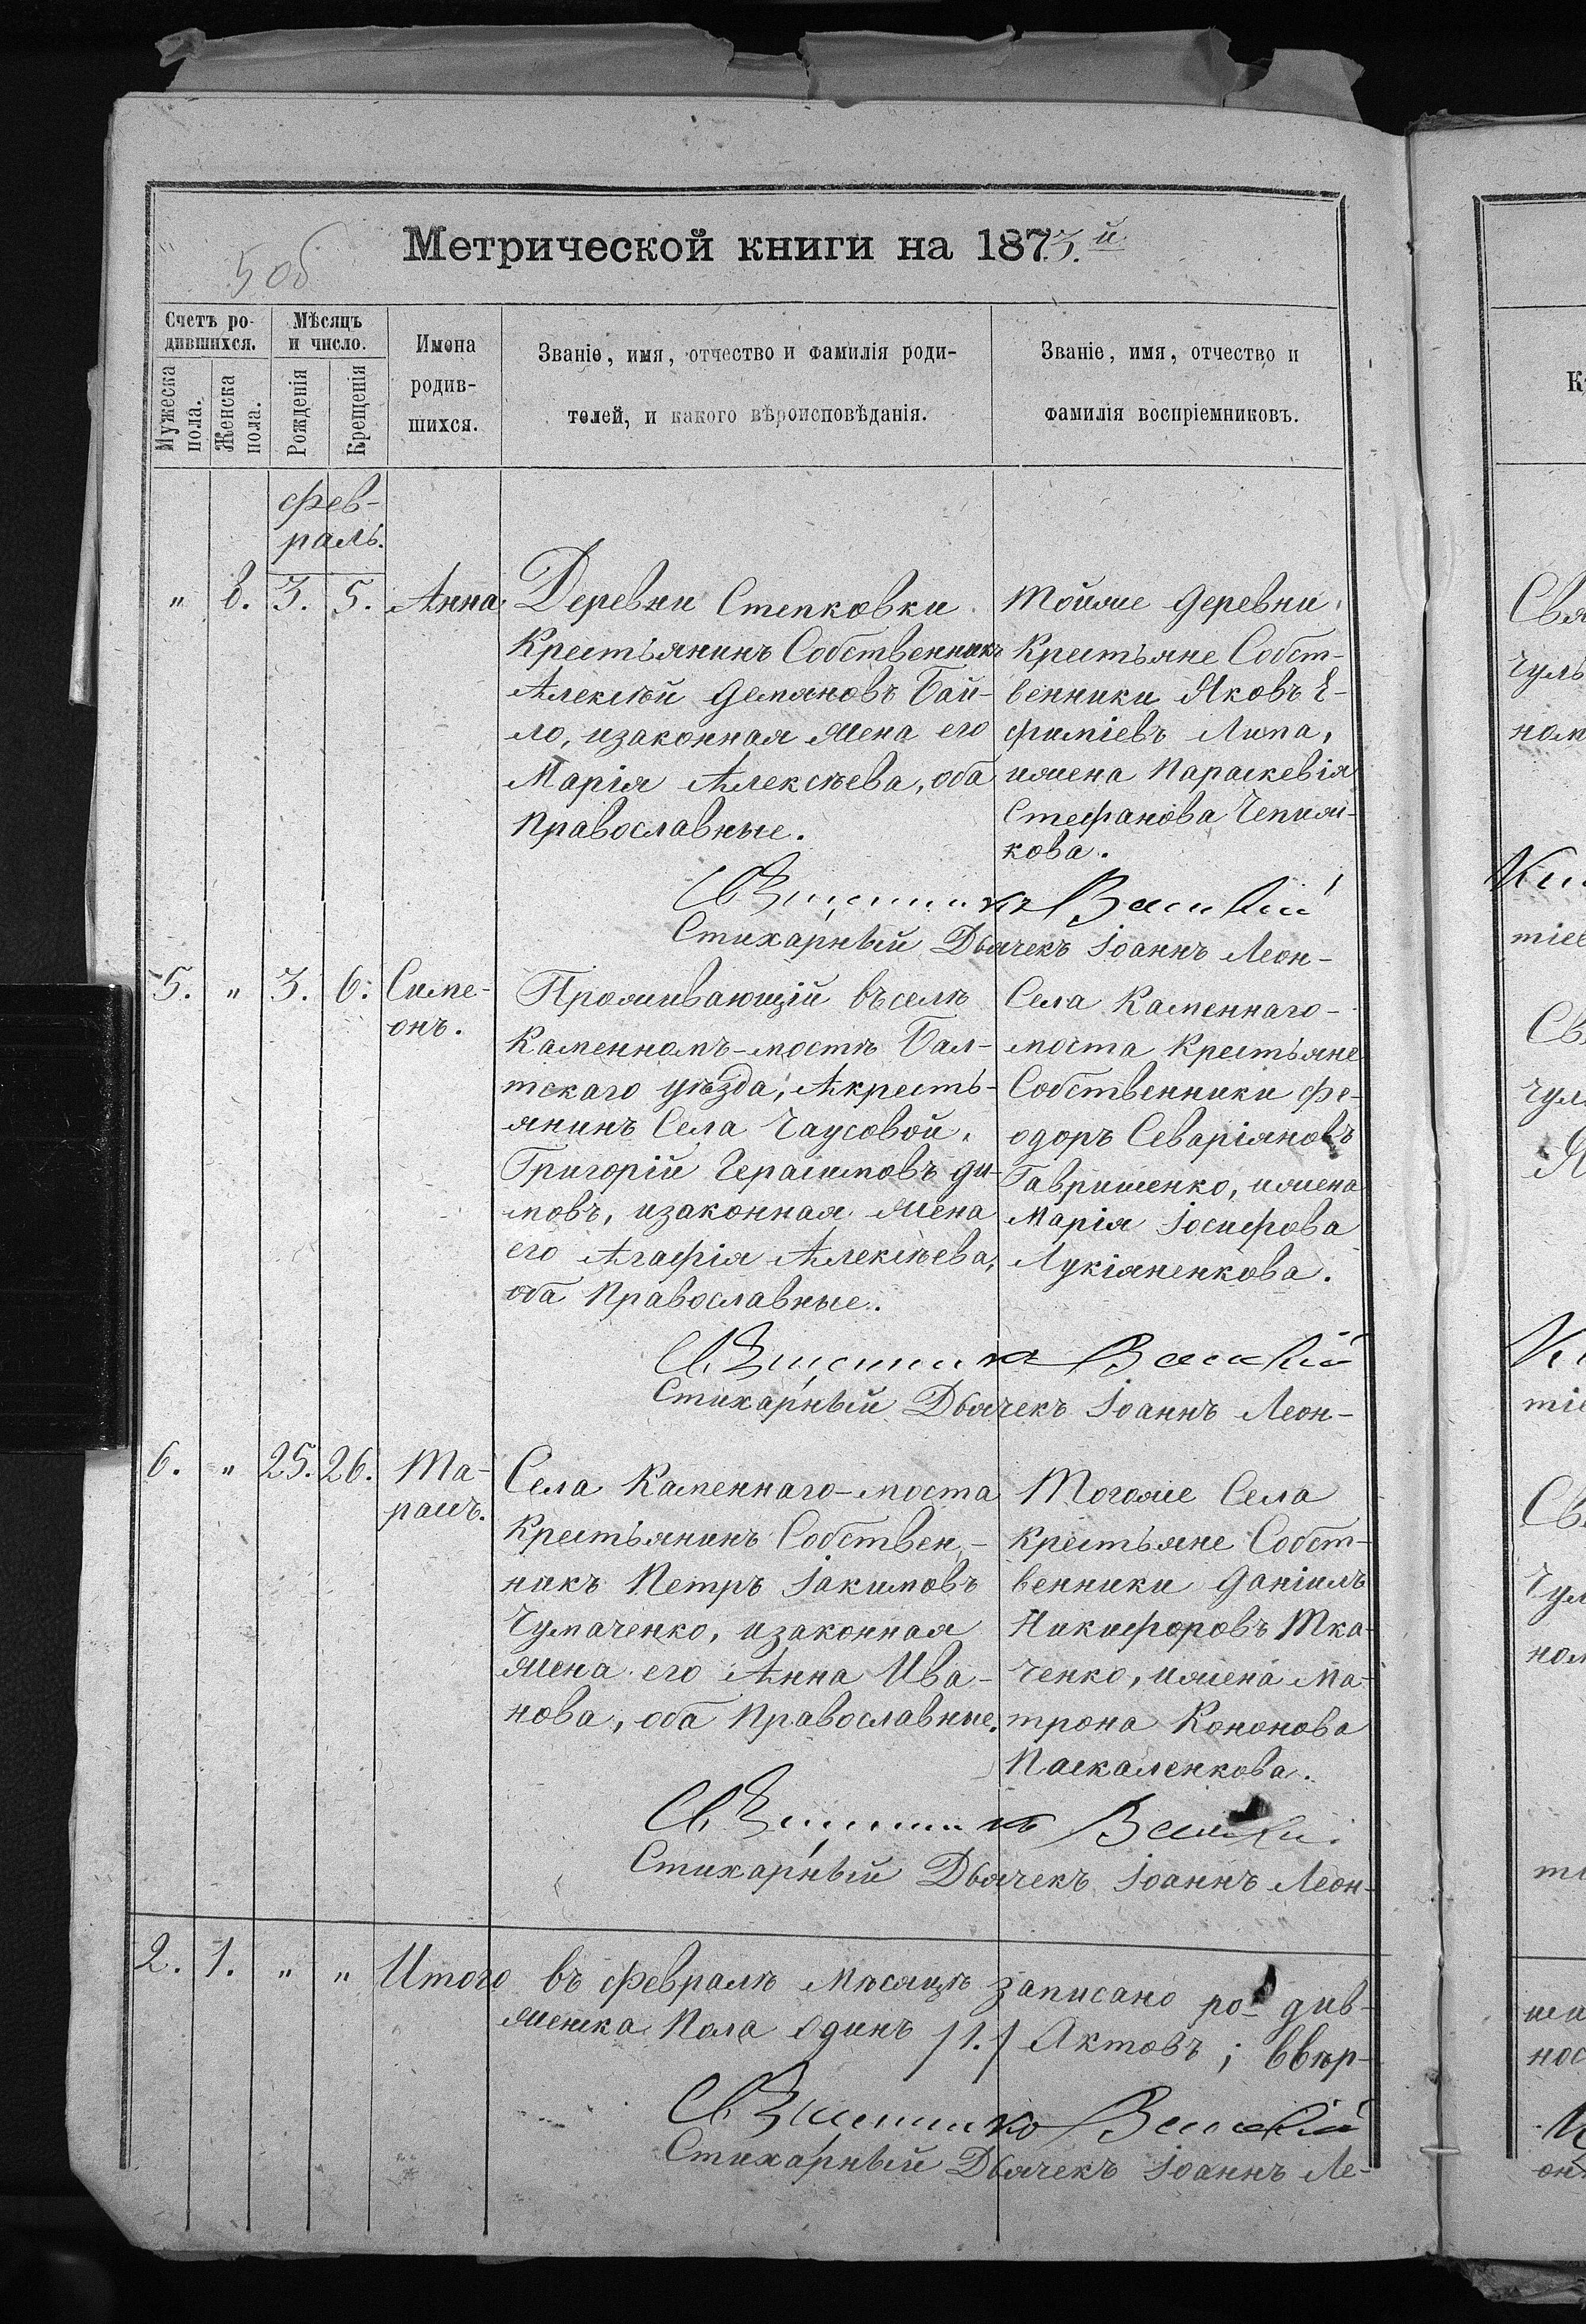 Метрической книги на 1873.й
5 об
Счетъ ро-
дившихся.
Мѣсяцъ
и число.
Имена
родив-
шихся.
Званіе, имя, отчество и фамилія роди-
телей, и какого вѣроисповѣданія.
Званіе, имя, отчество и
фамилія воспріемниковъ.
Мужеска
пола.
Женска
пола.
Рожденія
Крещенія
фев-
раль.
" 3. 5. Анна.
Деревни Степковки
Крестьянинъ Собственникъ
Алексѣй Демяновъ Бай-
ло, изаконная жена его
Марія Алексѣева, оба
Православные.
Тойже деревни
Крестьяне Собст-
венники Яковъ Е-
фиміевъ Липа,
ижена Параскевія
Стефанова Чепиж-
кова.
Священникъ Василій
Стихарный Дьячекъ Іоаннъ Леон-
5. " 3. 6. Симе-
онъ.
Проживающій въселѣ
Каменномъ-мостѣ Бал-
тскаго уѣзда, Акресть-
янинъ Села Чаусовой,
Григорій Герасимовъ Ди-
мовъ, изаконная жена
его Агафія Алексѣева,
оба Православные.
Села Каменнаго-
моста Крестьяне
Собственники Фе-
одоръ Северіяновъ
Гавришенко, ижена
Марія Іосифова
Лукіяненкова.
Священникъ Василій
Стихарный Дьячекъ Іоаннъ Леон-
6. " 25. 26. Та-
расъ.
Села Каменнаго-моста
Крестьянинъ Собствен-
никъ Петръ Іакимовъ
Чумаченко, изаконная
жена его Анна Ива-
нова, оба Православные.
Тогоже Села
Крестьяне Собст-
венники Даніилъ
Никифоровъ Тка-
ченко, ижена Ма-
трона Кононова
Паскаленкова.
Священникъ Василій
Стихарный Дьячекъ Іоаннъ Леон-
2. 1. " " Итого въ февралѣ мѣсяцѣ записано ро- див-
женска Пола Одинъ /1./ Актовъ; ввѣр-
Священникъ Василій
Стихарный Дьячекъ Іоаннъ Ле-